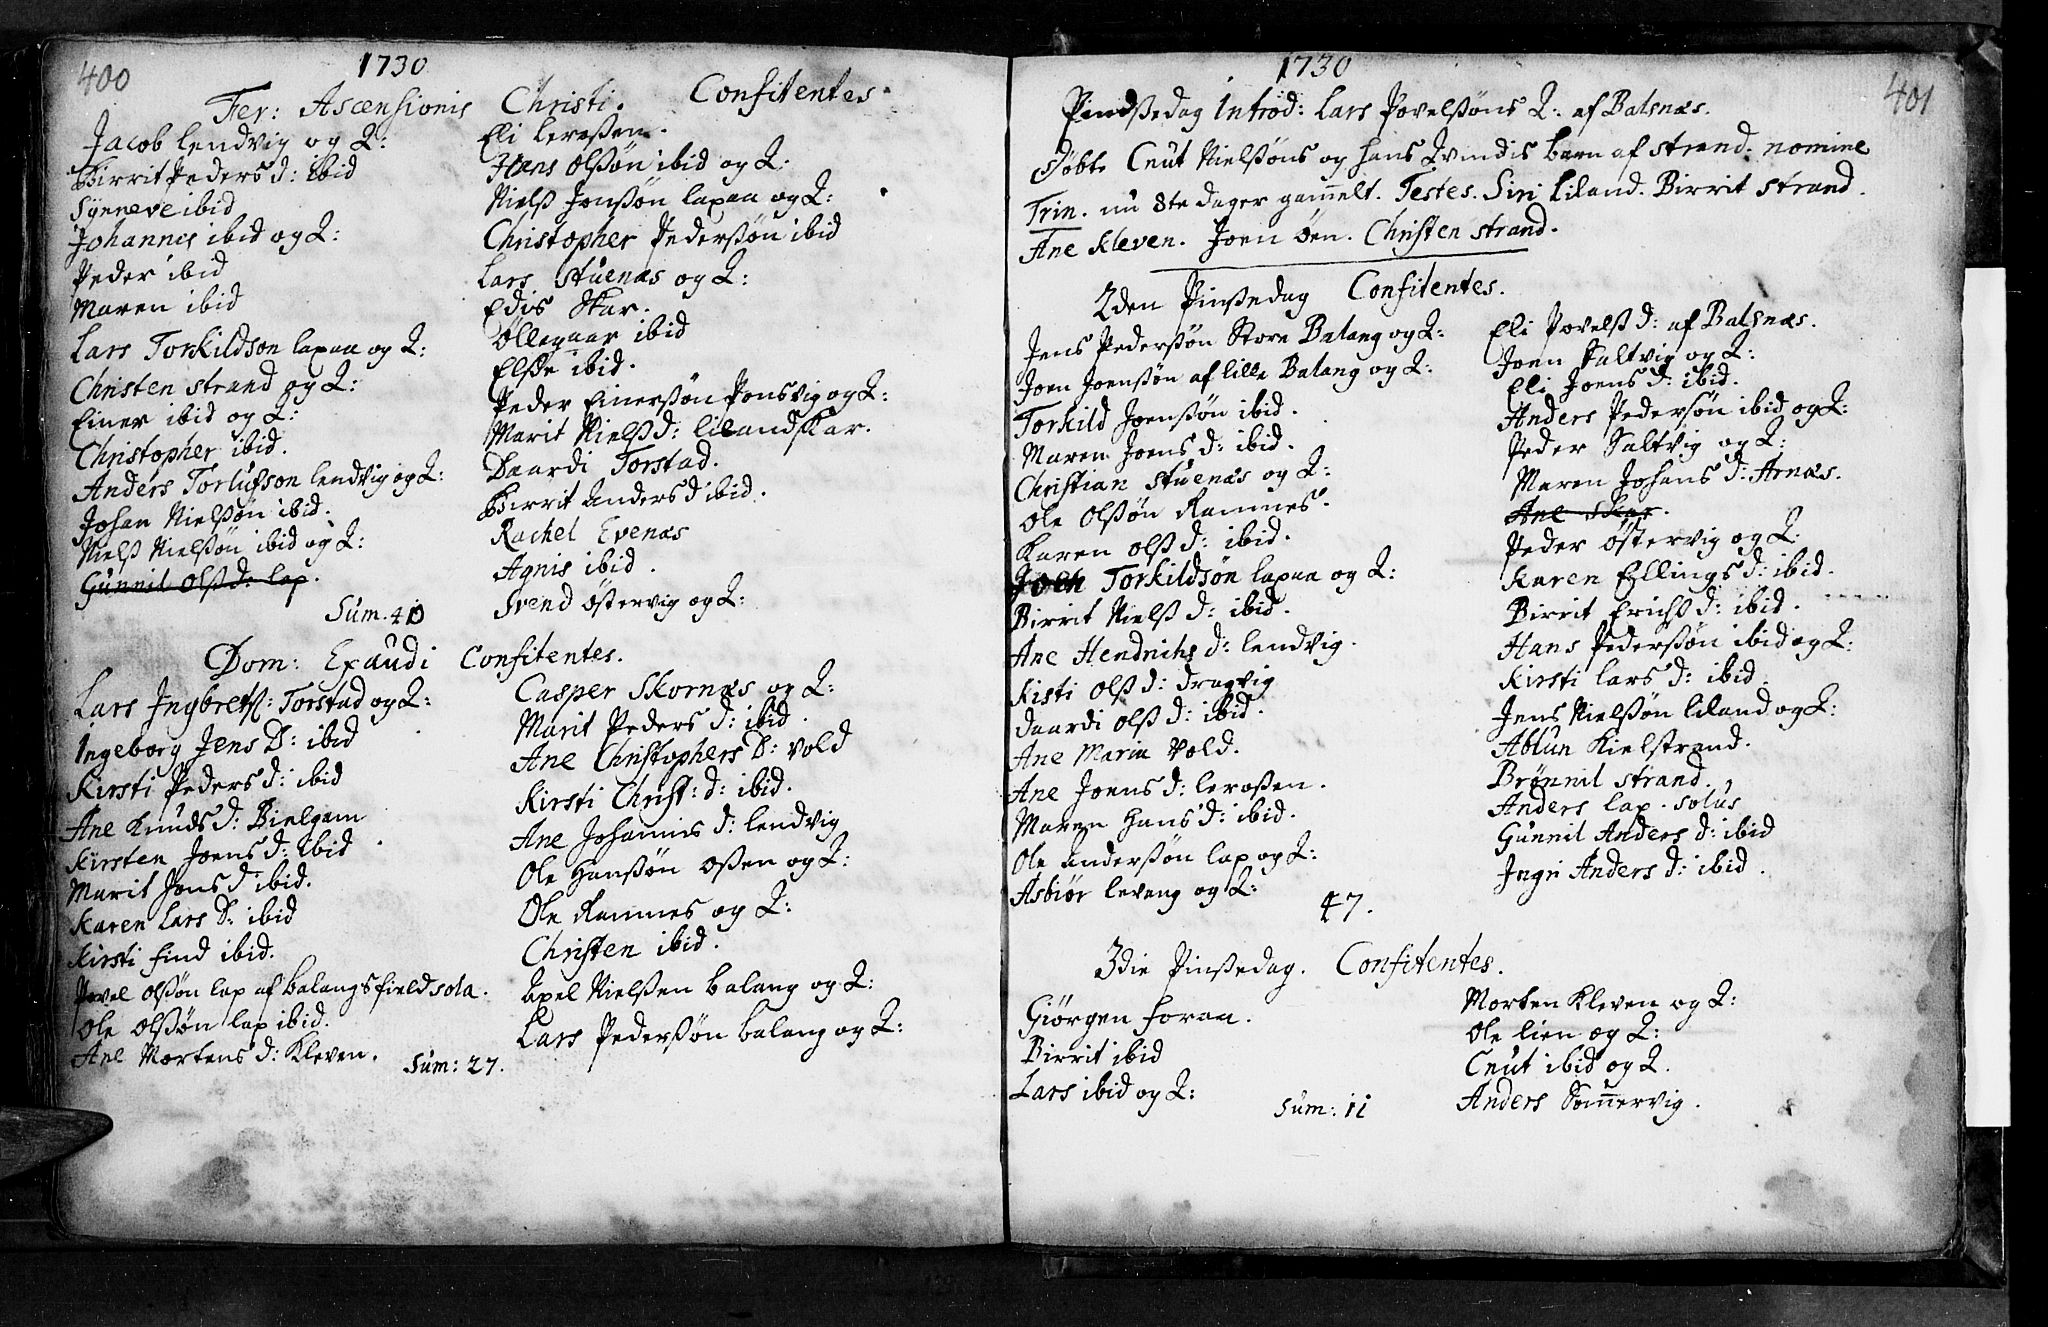 400
1730
Fer: Ascensionis Christi. Confitentes.
Jacob lendvig og Q:
Birrit Peders d: ibid
Synneve ibid
Johannes ibid og Q:
Peder ibid
Maren ibid
Lars Torkildson lapaa og Q:
Christen strand og Q:
Einer ibid og Q:
Christopher ibid.
Anders Torlufson lendvig og Q:
Johan Nielsøn ibid.
Niels Nielsøn ibid og Q:
Gunnil Olsd: lap.
Eli Leroßen.
Hans Olsøn ibid og Q:
Niels Jonsøn lapaa og Q:
Christopher Pedersøn ibid
Lars Stuenæs og Q:
Edis Skar.
Ollegaar ibid
Elsse ibid.
Peder Einersøn Ponsvig og Q:
Marit Niels d: lilandskar.
Daardi Torstad.
Birrit Anders d ibid.
Rachel Evenæs
Agnis ibid.
Svend Østervig og Q:
Sum. 40
Dom: Exaudi Confitentes.
Lars Ingbrets: Torstad og Q:
Ingeborg Jens D: ibid
Kirsti Peders d: ibid
Ane Knuds d: Bielgam
Kirsten Joens d: ibid
Marit Jons d ibid.
Karen Lars D: ibid
Kirsti find ibid.
Povel Olsøn lap af Balangsfield sola.
Ole Olsøn lap ibid.
Ane Mortens d: Kleven.
Casper Skornæs og Q:
Marit Peders d: ibid.
Ane Christophers D: vold
Kirsti Christ: d: ibid.
Ane Johannis d: lendvig
Ole Hansøn Oßen og Q:
Ole Ramnes og Q:
Christen ibid.
Axel Nielsen Balang og Q:
Lars Pedersøn Balang og Q:
Sum: 27.
401
1730
Pindsedag Introd: Lars Povelsøns Q: af Balsnæs.
døbte Cnut Nielsøns og hans Qvindis barn af strand. nomine
Trin. nu 8te dager gam̄elt. Testes. Siri Liland. Birrit strand.
Ane Kleven. Joen øen. Christen strand.
2den Pinsedag Confitentes.
Jens Pedersøn Store Balang og Q:
Joen Joensøn af lille Balang og Q:
Torkild Joensøn ibid.
Maren Joens d: ibid.
Christian Stuenæs og Q:
Ole Olsøn Ramnes.
Karen Ols d: ibid.
Joen Torkildsøn lapaa og Q:
Birrit Niels d: ibid.
Ane Hendrichs d: lendvig.
Kisti Ols d: dragvig
Daardi Ols d: ibid.
Ane Maria Vold.
Ane Joens d: leroßen.
Maren Hans d: ibid.
Ole Andersøn lap og Q:
Asbiør levang og Q:
Eli Povels d: af Balsnæs.
Joen Saltvig og Q:
Eli Joens d: ibid.
Anders Pedersøn ibid og Q:
Peder Saltvig og Q:
Maren Johans d: Arnæs.
Ane Skar.
Peder Østervig og Q:
Karen Ellings d: ibid.
Birrit Erichs d: ibid.
Hans Pedersøn ibid og Q:
Kirsti Lars d: ibid.
Jens Nielsøn liland og Q:
Ablun Kielstrand.
Brønnil strand.
Anders lap. solus
Gunnil Anders d: ibid
Ingri Anders d: ibid.
47.
3die Pinsedag. Confitentes.
Giørgen foraa.
Birrit ibid
Lars ibid og Q:
Morten Kleven og Q:
Ole lien og Q:
Cnut ibid og Q.
Anders Som̄ervig.
Sum: 11